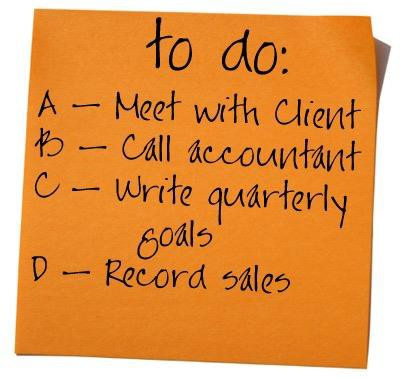 to do:
A – Meet with Client
B – Call accountant
C – Write quarterly
goals
D – Record sales